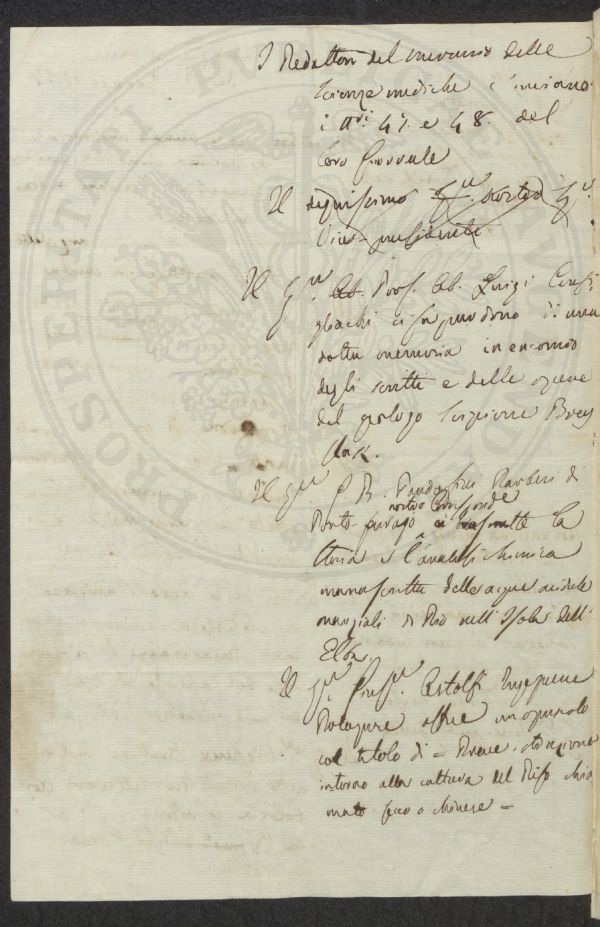 I Redattori del mercurio delle
scienze mediche c'inviano
i Nri 47. e 48. del
loro giornale
Il degnissimo Sigr. nostro Sigr.
Vice-presidente
Il Sigr. Ab. Prof. Ab. Luigi Confi-
gliachi ci fa pur dono di una
dotta memoria in encomio
degli scritti e delle opere
del geologo Scipione Breys
lak.
Il Sigr. G. B. Barbieri di
nostro Corrisponde
Porto-ferrajo ci trasmette la
storia e l'analisi chimica
manoscritta delle acque acidule
marziali di Rio nell'Isola dell'
Elba.
Il Sigr. Astolfi Ingegnere
Bolognese offre un opuscolo
col titolo di = Breve istruzione
intorno alla coltura del Riso chia
mato secco o chinese =
PROSPERITATI PUBLICAE